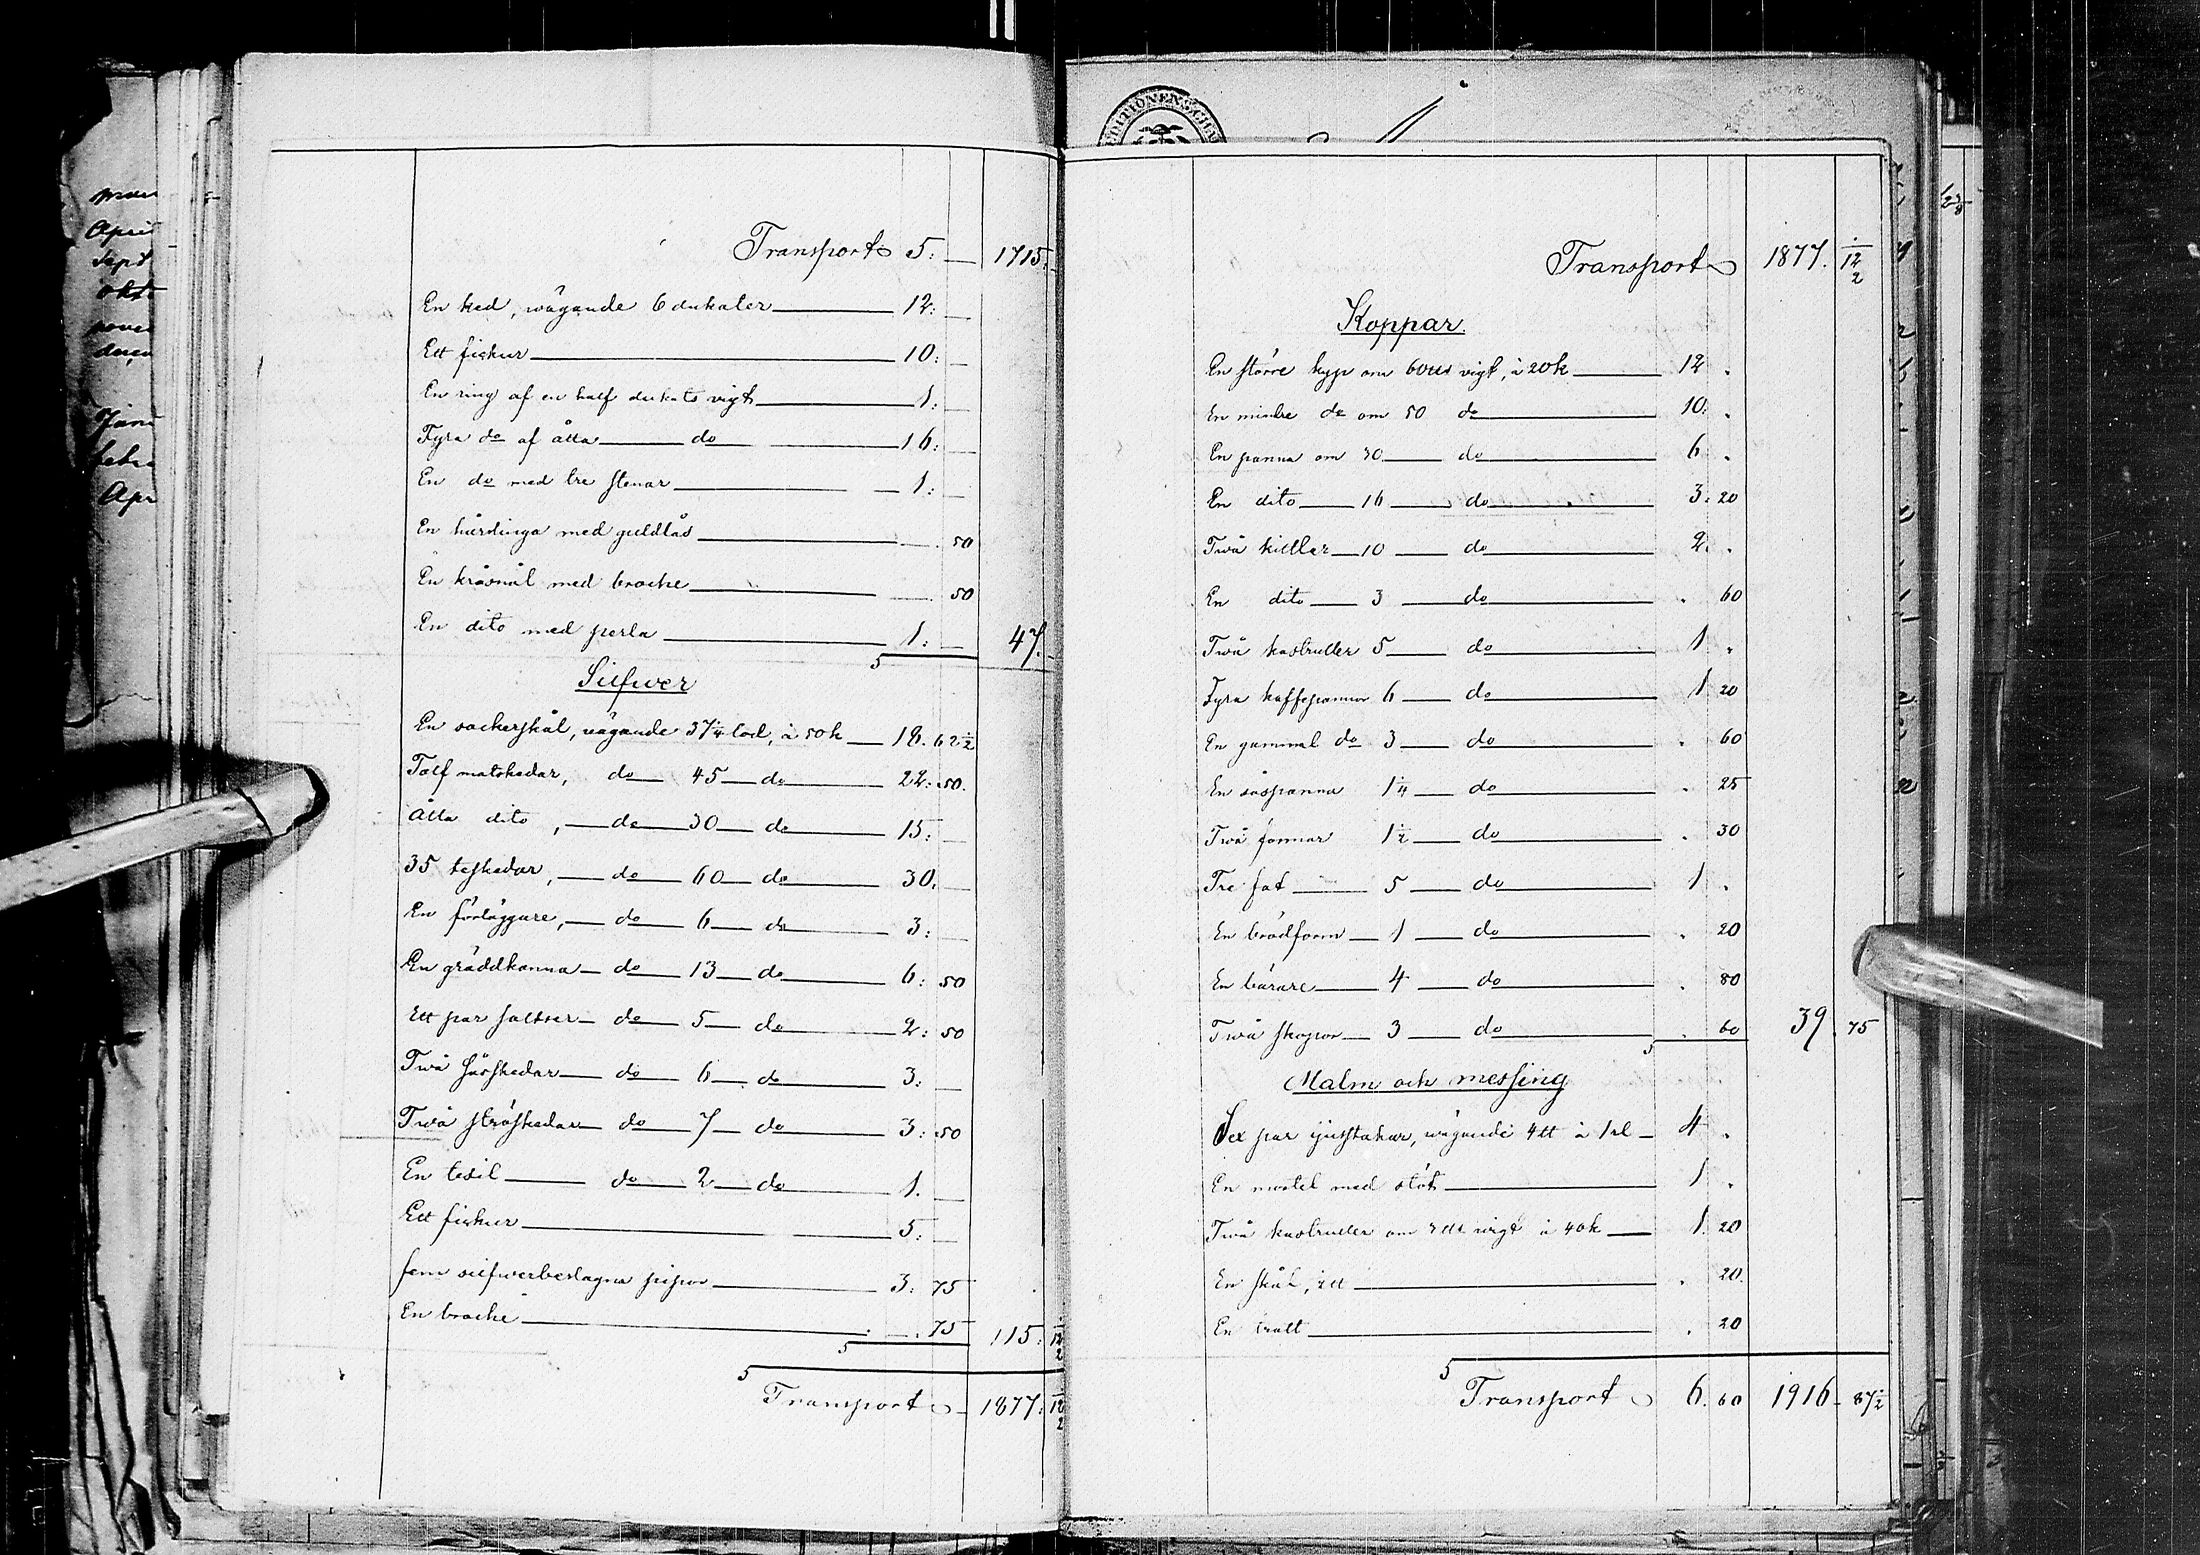 Transport 5: — 1715: —
En ked, wägande 6 dukater — 12: —
Ett fickur — 10: —
En ring af en half dukats vigt — 1: —
Fyra do af åtta — do — 16: —
En do med tre stenar — 1: —
En hårdinga med guldlås — 50
En kråsnål med broche — 50
En dito med perla — 1: — 47. —
Silfwer
En sockerskål, vägande 37 1/4 lod, à 50 k — 18. 62 1/2
Tolf matskedar, do — 45 — do — 22: 50.
Åtta dito, — do — 30 — do — 15: —
35 teskedar, — do — 60 — do — 30. —
En förläggare, — do — 6 — do — 3: —
En gräddkanna — do — 13 — do — 6: 50
Ett par saltser — do — 5 — do — 2: 50
Twå såsskedar — do — 6 — do — 3: —
Twå ströskedar — do — 7 — do — 3: 50
En tesil — do — 2 — do — 1. —
Ett fickur — 5: —
fem silfwerbeslagna pipor — 3: 75
En broche — 75 115: 12 1/2
Transport — 1877: 12 1/2
Transport 1877. 12 1/2
Koppar.
En större kyp om 60 ℔ vigt, à 20 k — 12 .
En mindre do om 50 do — 10: .
En panna om 30 — do — 6 .
En dito — 16 — do — 3: 20
Twå kittlar — 10 — do — 2. .
En dito — 3 — do — . 60
Twå kastruller 5 — do — 1 .
Fyra kaffepannor 6 — do — 1 20
En gammal do 3 — do — . 60
En såspanna 1 1/4 — do — . 25
Twå formar 1 1/2 — do — . 30
Tre fat — 5 — do — 1 .
En brödform — 1 — do — . 20
En bärare — 4 — do — . 80
Twå skopor — 3 — do — . 60 39. 75
Malm och messing
Sex par ljusstakar, wägande 4 ℔ à 1 rl — 4 .
En mortel med stöt — 1 .
Twå kastruller om 3 ℔ wigt à 40 k — 1. 20
En skål, — . 20.
En tratt — . 20
Transport 6. 60 1916 — 87 1/2